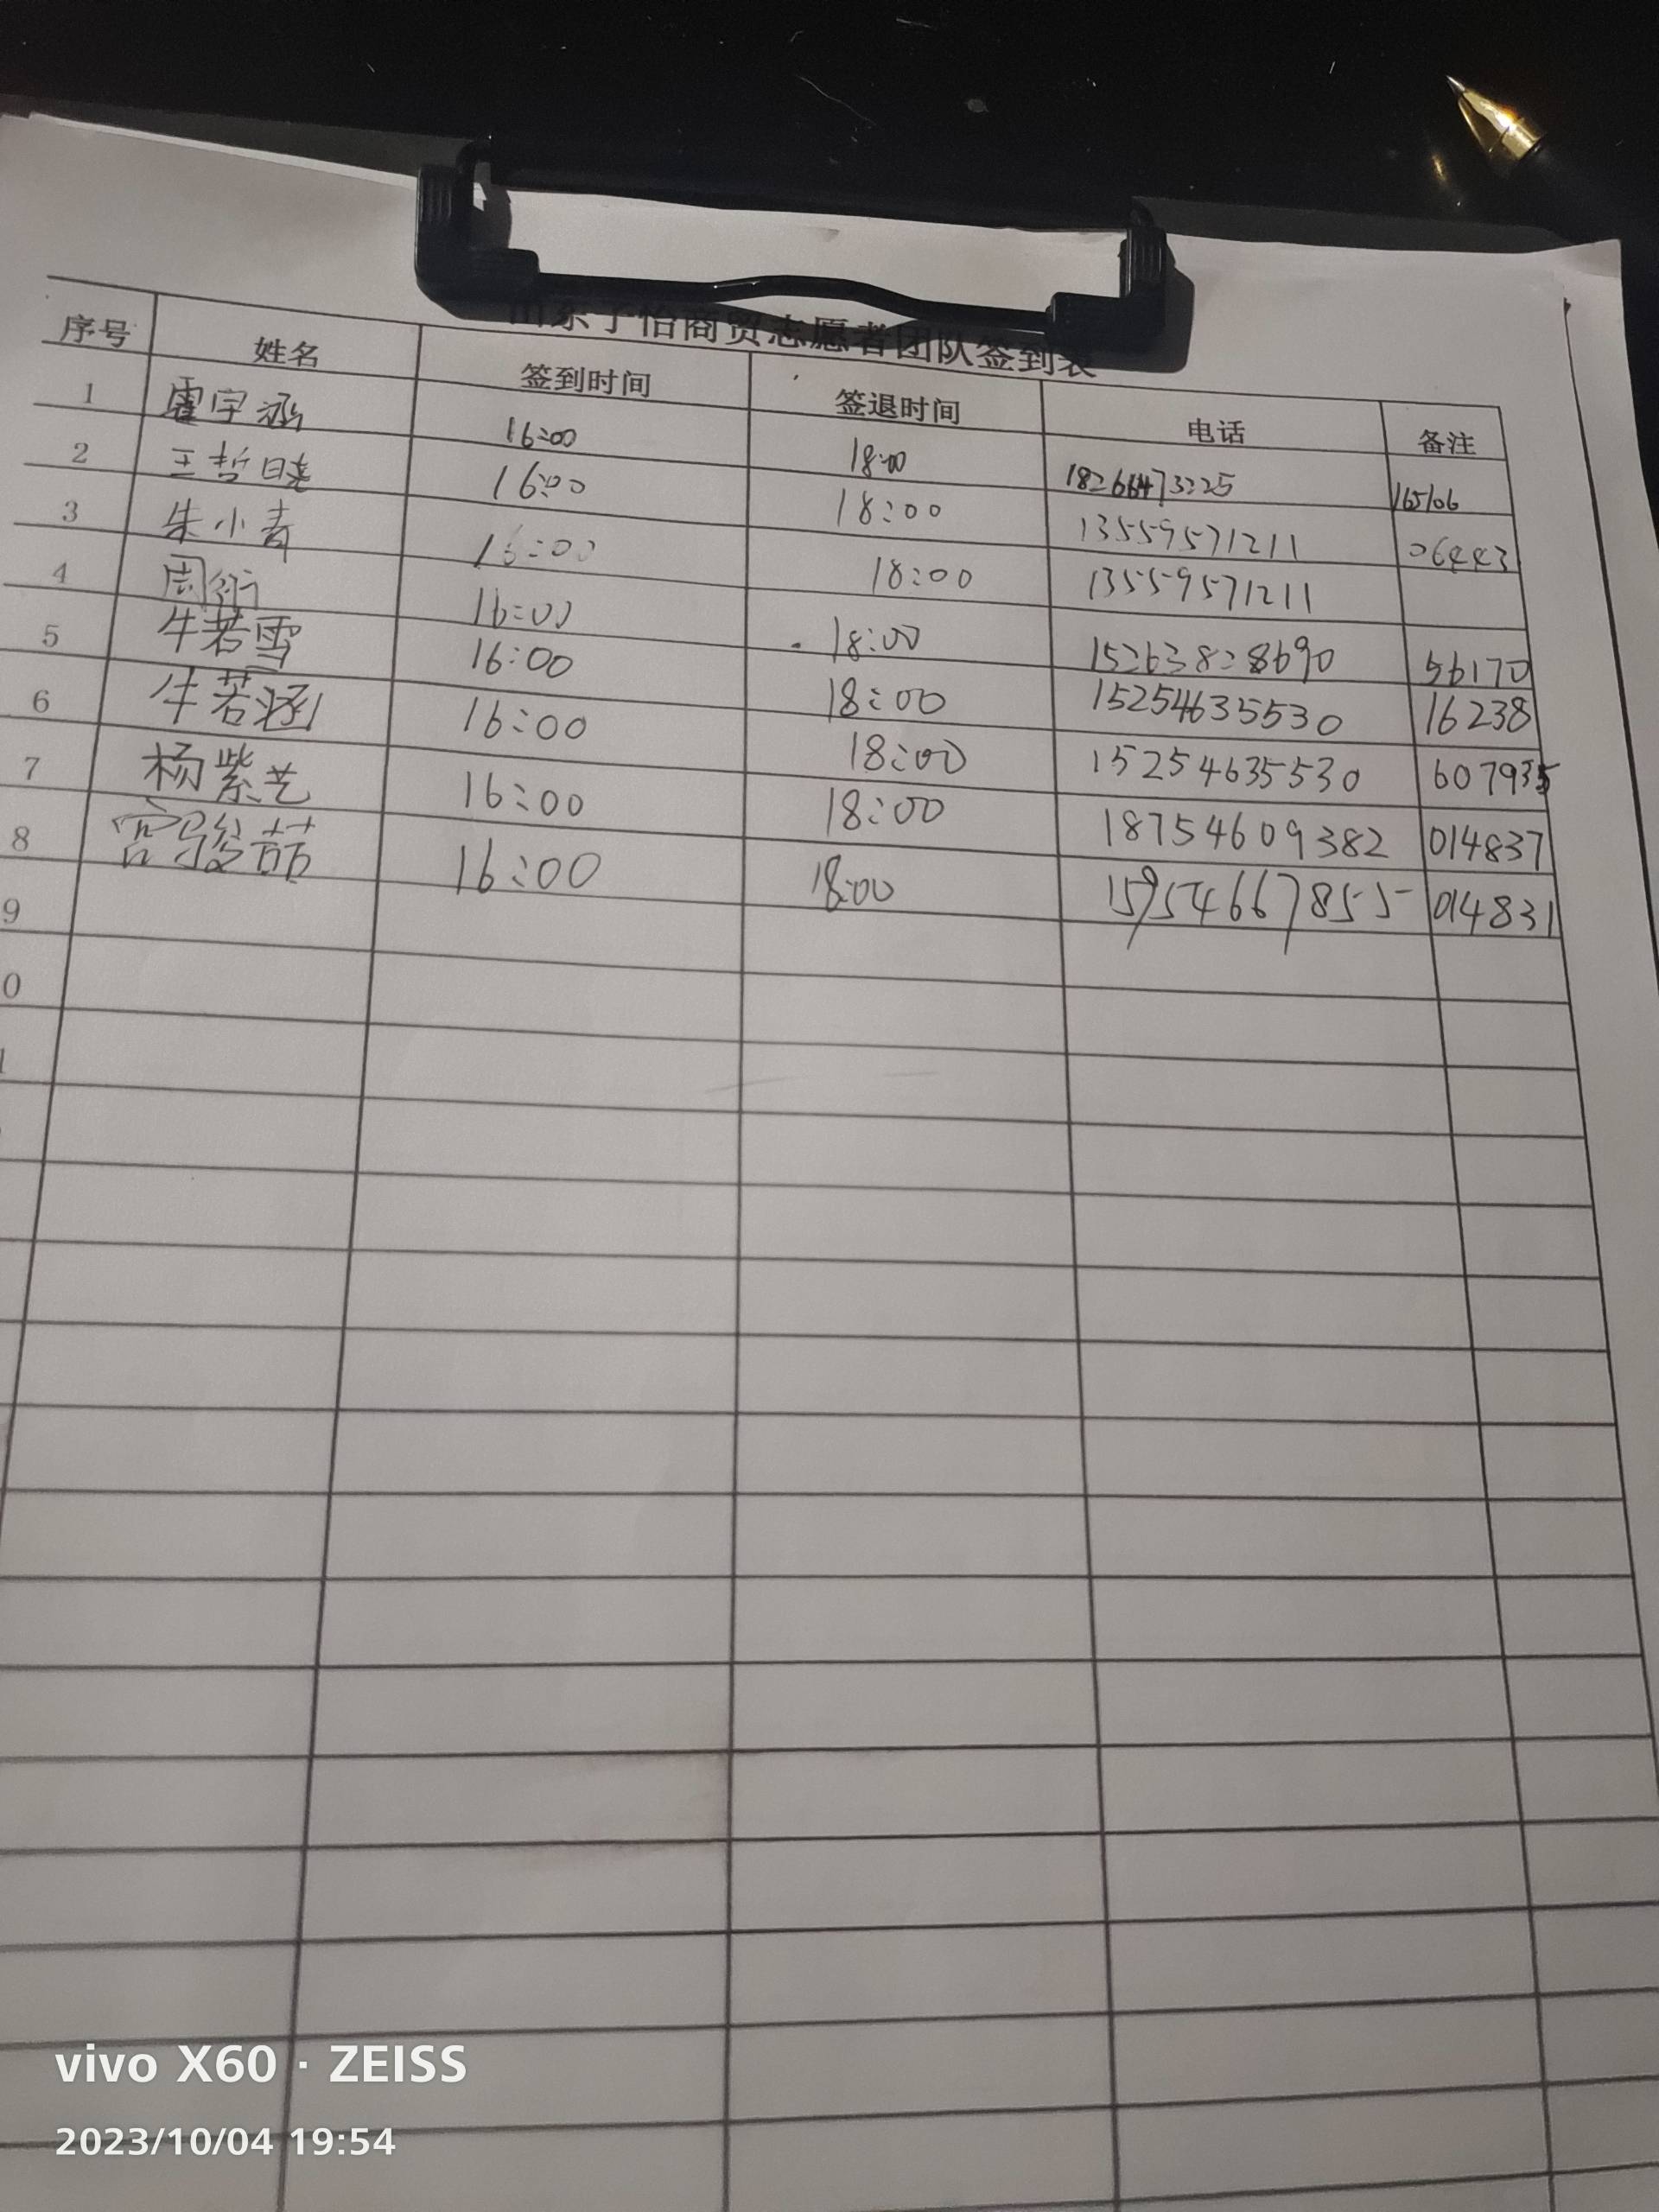 山东子怡商贸志愿者团队签到表
序号 姓名 签到时间 签退时间 电话 备注
1 霍宇涵 16:00 18:00 18266473225 165106
2 王哲晓 16:00 18:00 13559571211 06443
3 朱小青 16:00 18:00 13559571211
4 周衍 16:00 18:00 15263828690 56170
5 牛若雪 16:00 18:00 15254635530 16238
6 牛若涵 16:00 18:00 15254635530 607935
7 杨紫艺 16:00 18:00 18754609382 014837
8 宫骏喆 16:00 18:00 15954667855 014831
9
0
vivo X60 · ZEISS
2023/10/04 19:54